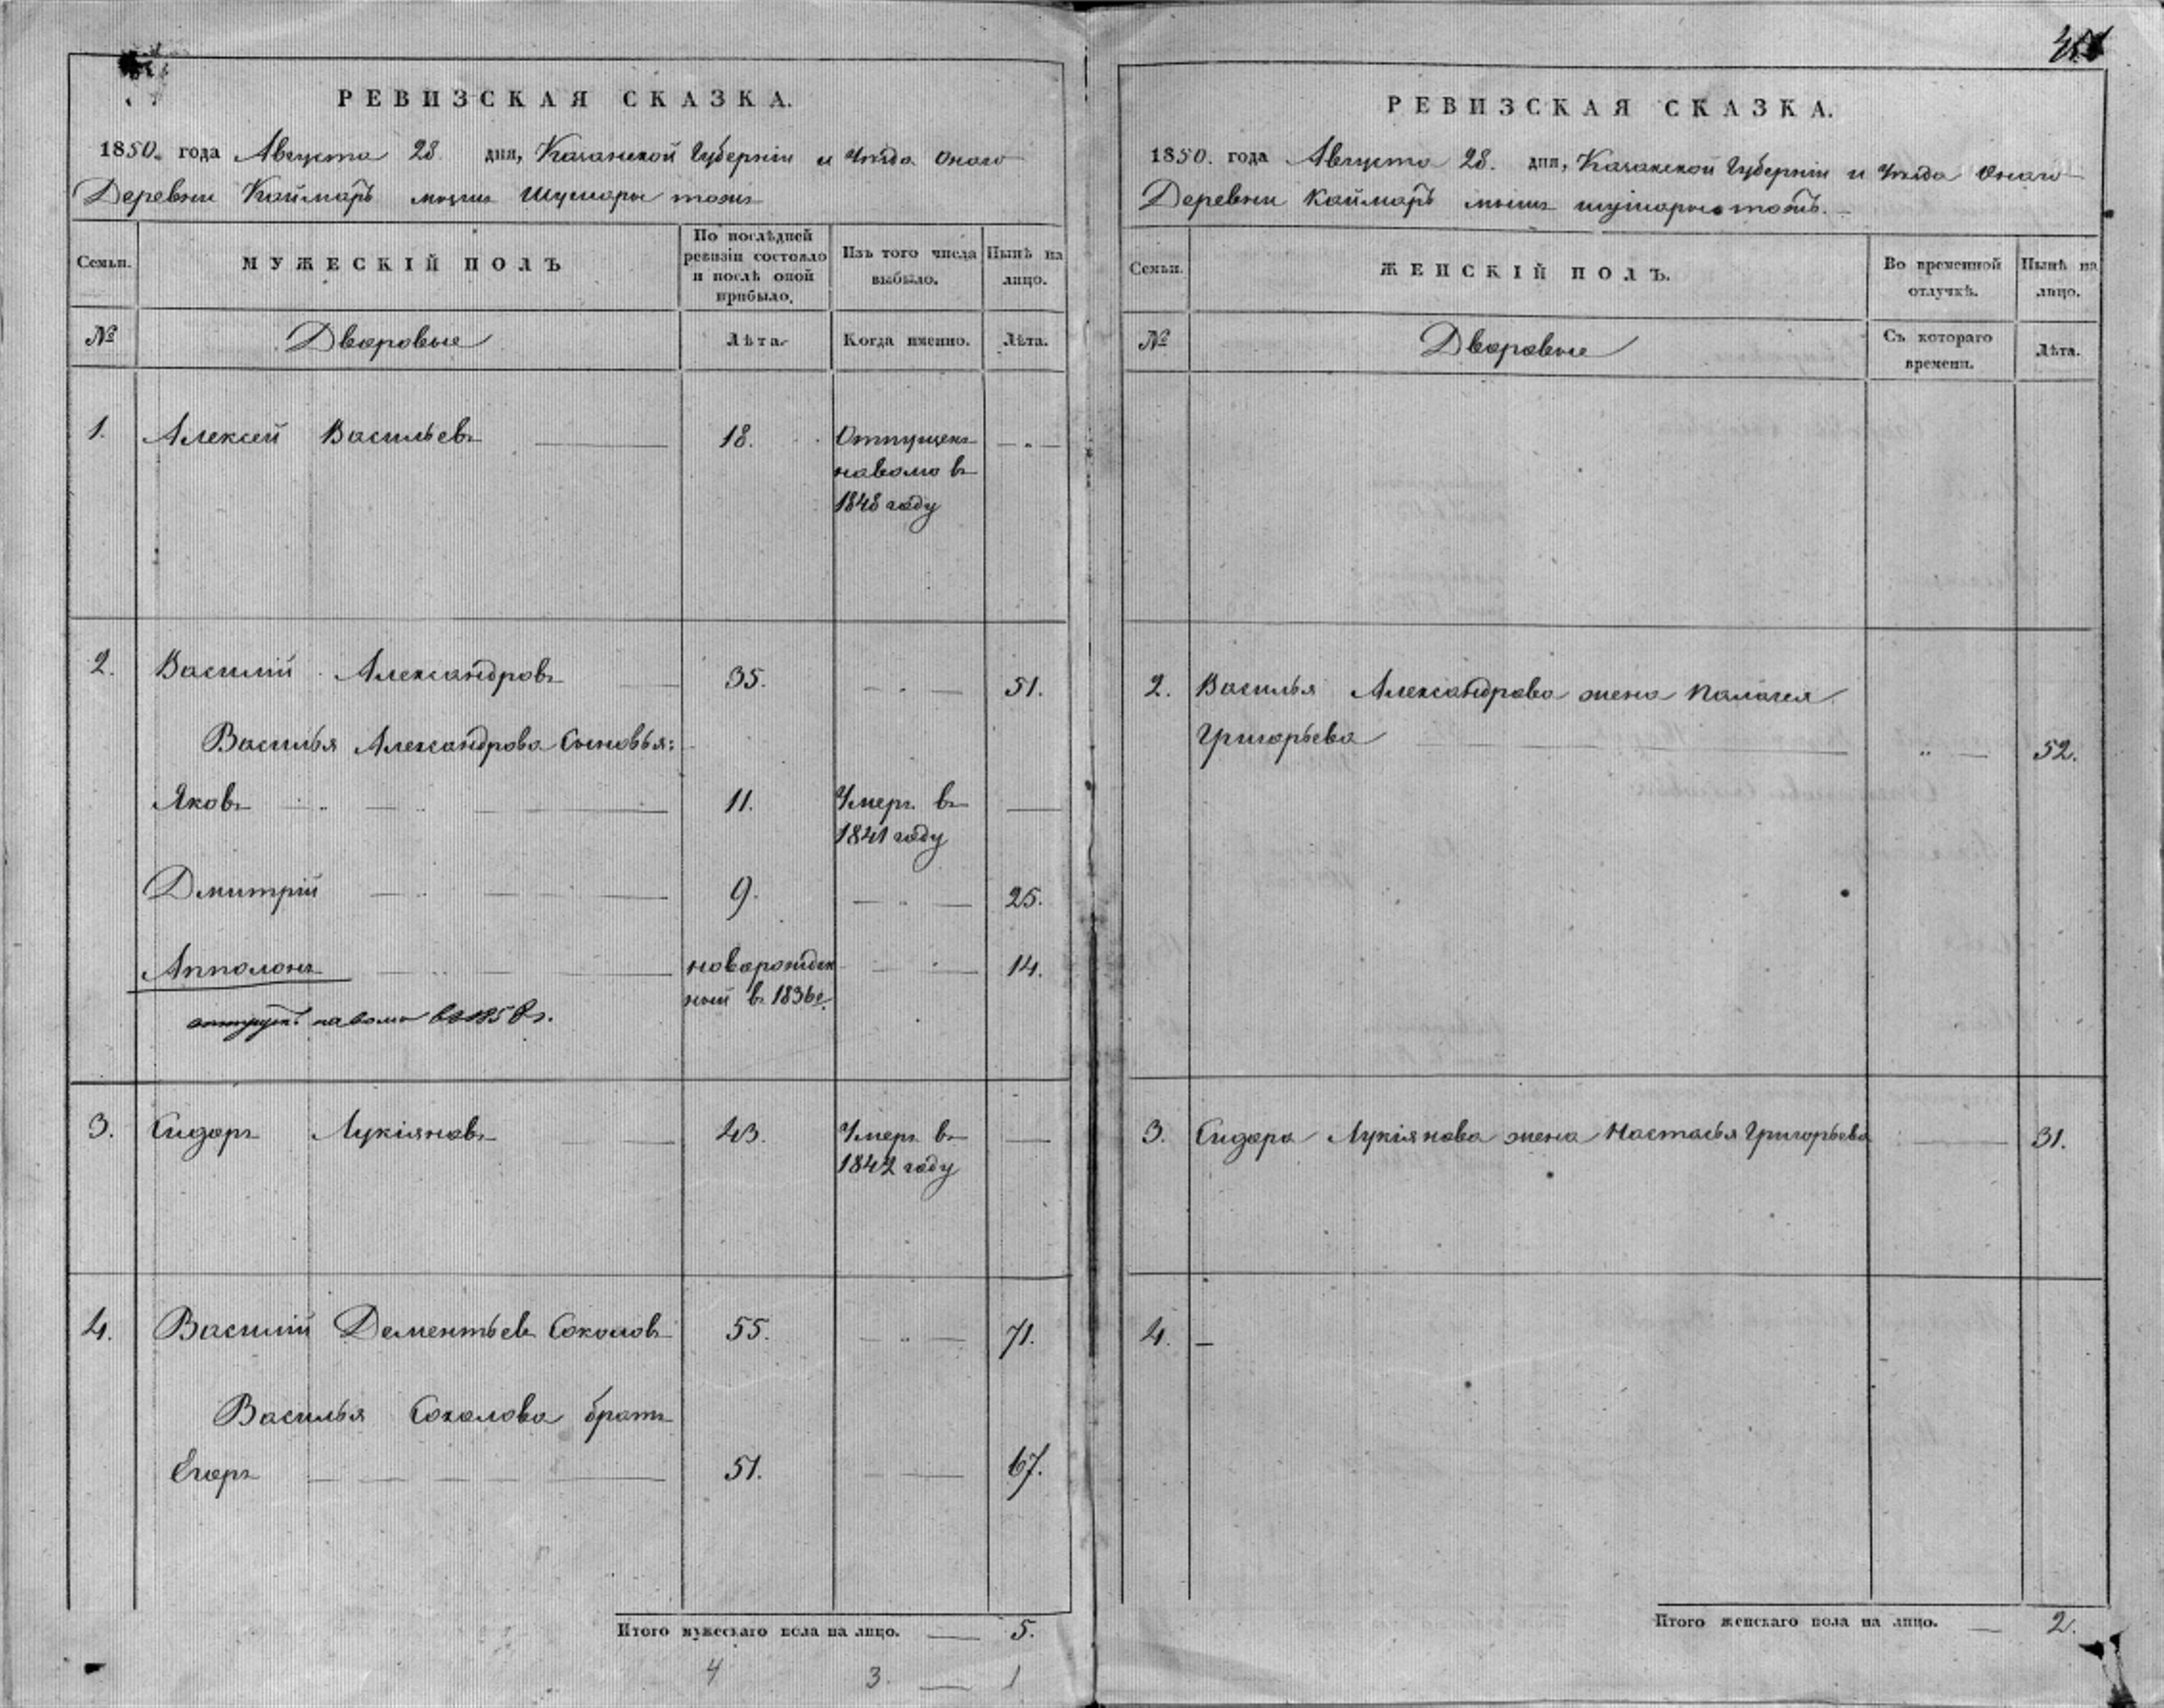 РЕВИЗСКАЯ СКАЗКА.
1850. года Августа 28. дня, Казанской Губерніи и Уѣзда Онаго
Деревни Каймаръ
Семьи.
МУЖЕСКІЙ ПОЛЪ
По послѣдней
ревизіи состояло
и послѣ оной
прибыло.
Изъ того числа
выбыло.
Нынѣ на
лицо.
№
Дворовые
Лѣта.
Когда именно.
Лѣта.
1. Алексей Васильевъ 18. Отпущенъ
наволю въ
1848 году
2. Василій Александровъ 35. 51.
Василья Александрова Сыновья:
Яковъ 11. Умеръ въ
1841 году
Дмитрій 9. 25.
Апполонъ новорожден 14.
ный въ 1836 г.
наволю
3. Сидоръ Лукіяновъ 43. Умеръ въ
1842 году
4. Василій Дементьевъ Соколовъ 55. 71.
Василья Соколова братъ
Егоръ 51. 67.
Итого мужескаго пола на лицо. 5.
4 3 1
РЕВИЗСКАЯ СКАЗКА.
1850. года Августа 28. дня, Казанской Губерніи и Уѣзда Онаго
Деревни Каймаръ
Семьи.
ЖЕНСКІЙ ПОЛЪ.
Во временной
отлучкѣ.
Нынѣ на
лицо.
№
Дворовые
Съ котораго
времени.
Лѣта.
2. Василья Александрова жена Палагея
Григорьева 52.
3. Сидора Лукіянова жена Настасья Григорьева 31.
4.
Итого женскаго пола на лицо. 2.